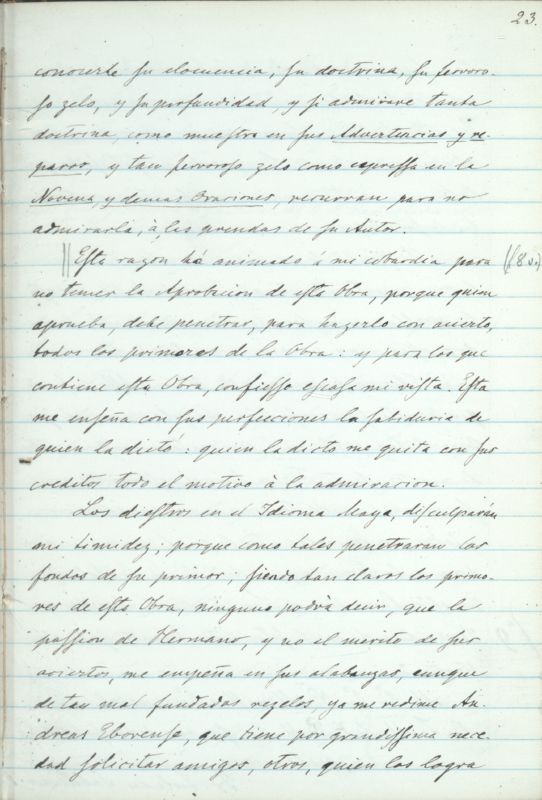 23.
conocerle su elocuencia, su doctrina, su fervoro-
so zelo, y su profundidad, y si admirare tanta
doctrina, como muestra en sus Advertencias y re-
paros, y tan fervoroso zelo como expressa en la
Novena, y demas Oraciones, recurran para no
admirarla, à las prendas de su Autor.
|| Esta razon há animado á mi cobardia para
no temer la Aprobacion de esta Obra, porque quien
aprueba, debe penetrar, para hazerlo con acierto,
todos los primores de la Obra: y para los que
contiene esta Obra, confiesso escasa mi vista. Esta
me enseña con sus perfecciones la sabiduria de
quien la dictó: quien la dicto me quita con sus
creditos todo el motivo à la admiracion.
Los diestros en el Idioma Maya, disculparán
mi timidez; porque como tales penetraran los
fondos de su primor; siendo tan claros los primo-
res de esta Obra, ninguno podrà decir, que la
passion de Hermano, y no el merito de sus
aciertos, me empeña en sus alabanzas, aunque
de tan mal fundados rezelos, ya me redime An-
dreas Eborense, que tiene por grandissima nece-
dad solicitar amigos, otros, quien los logra